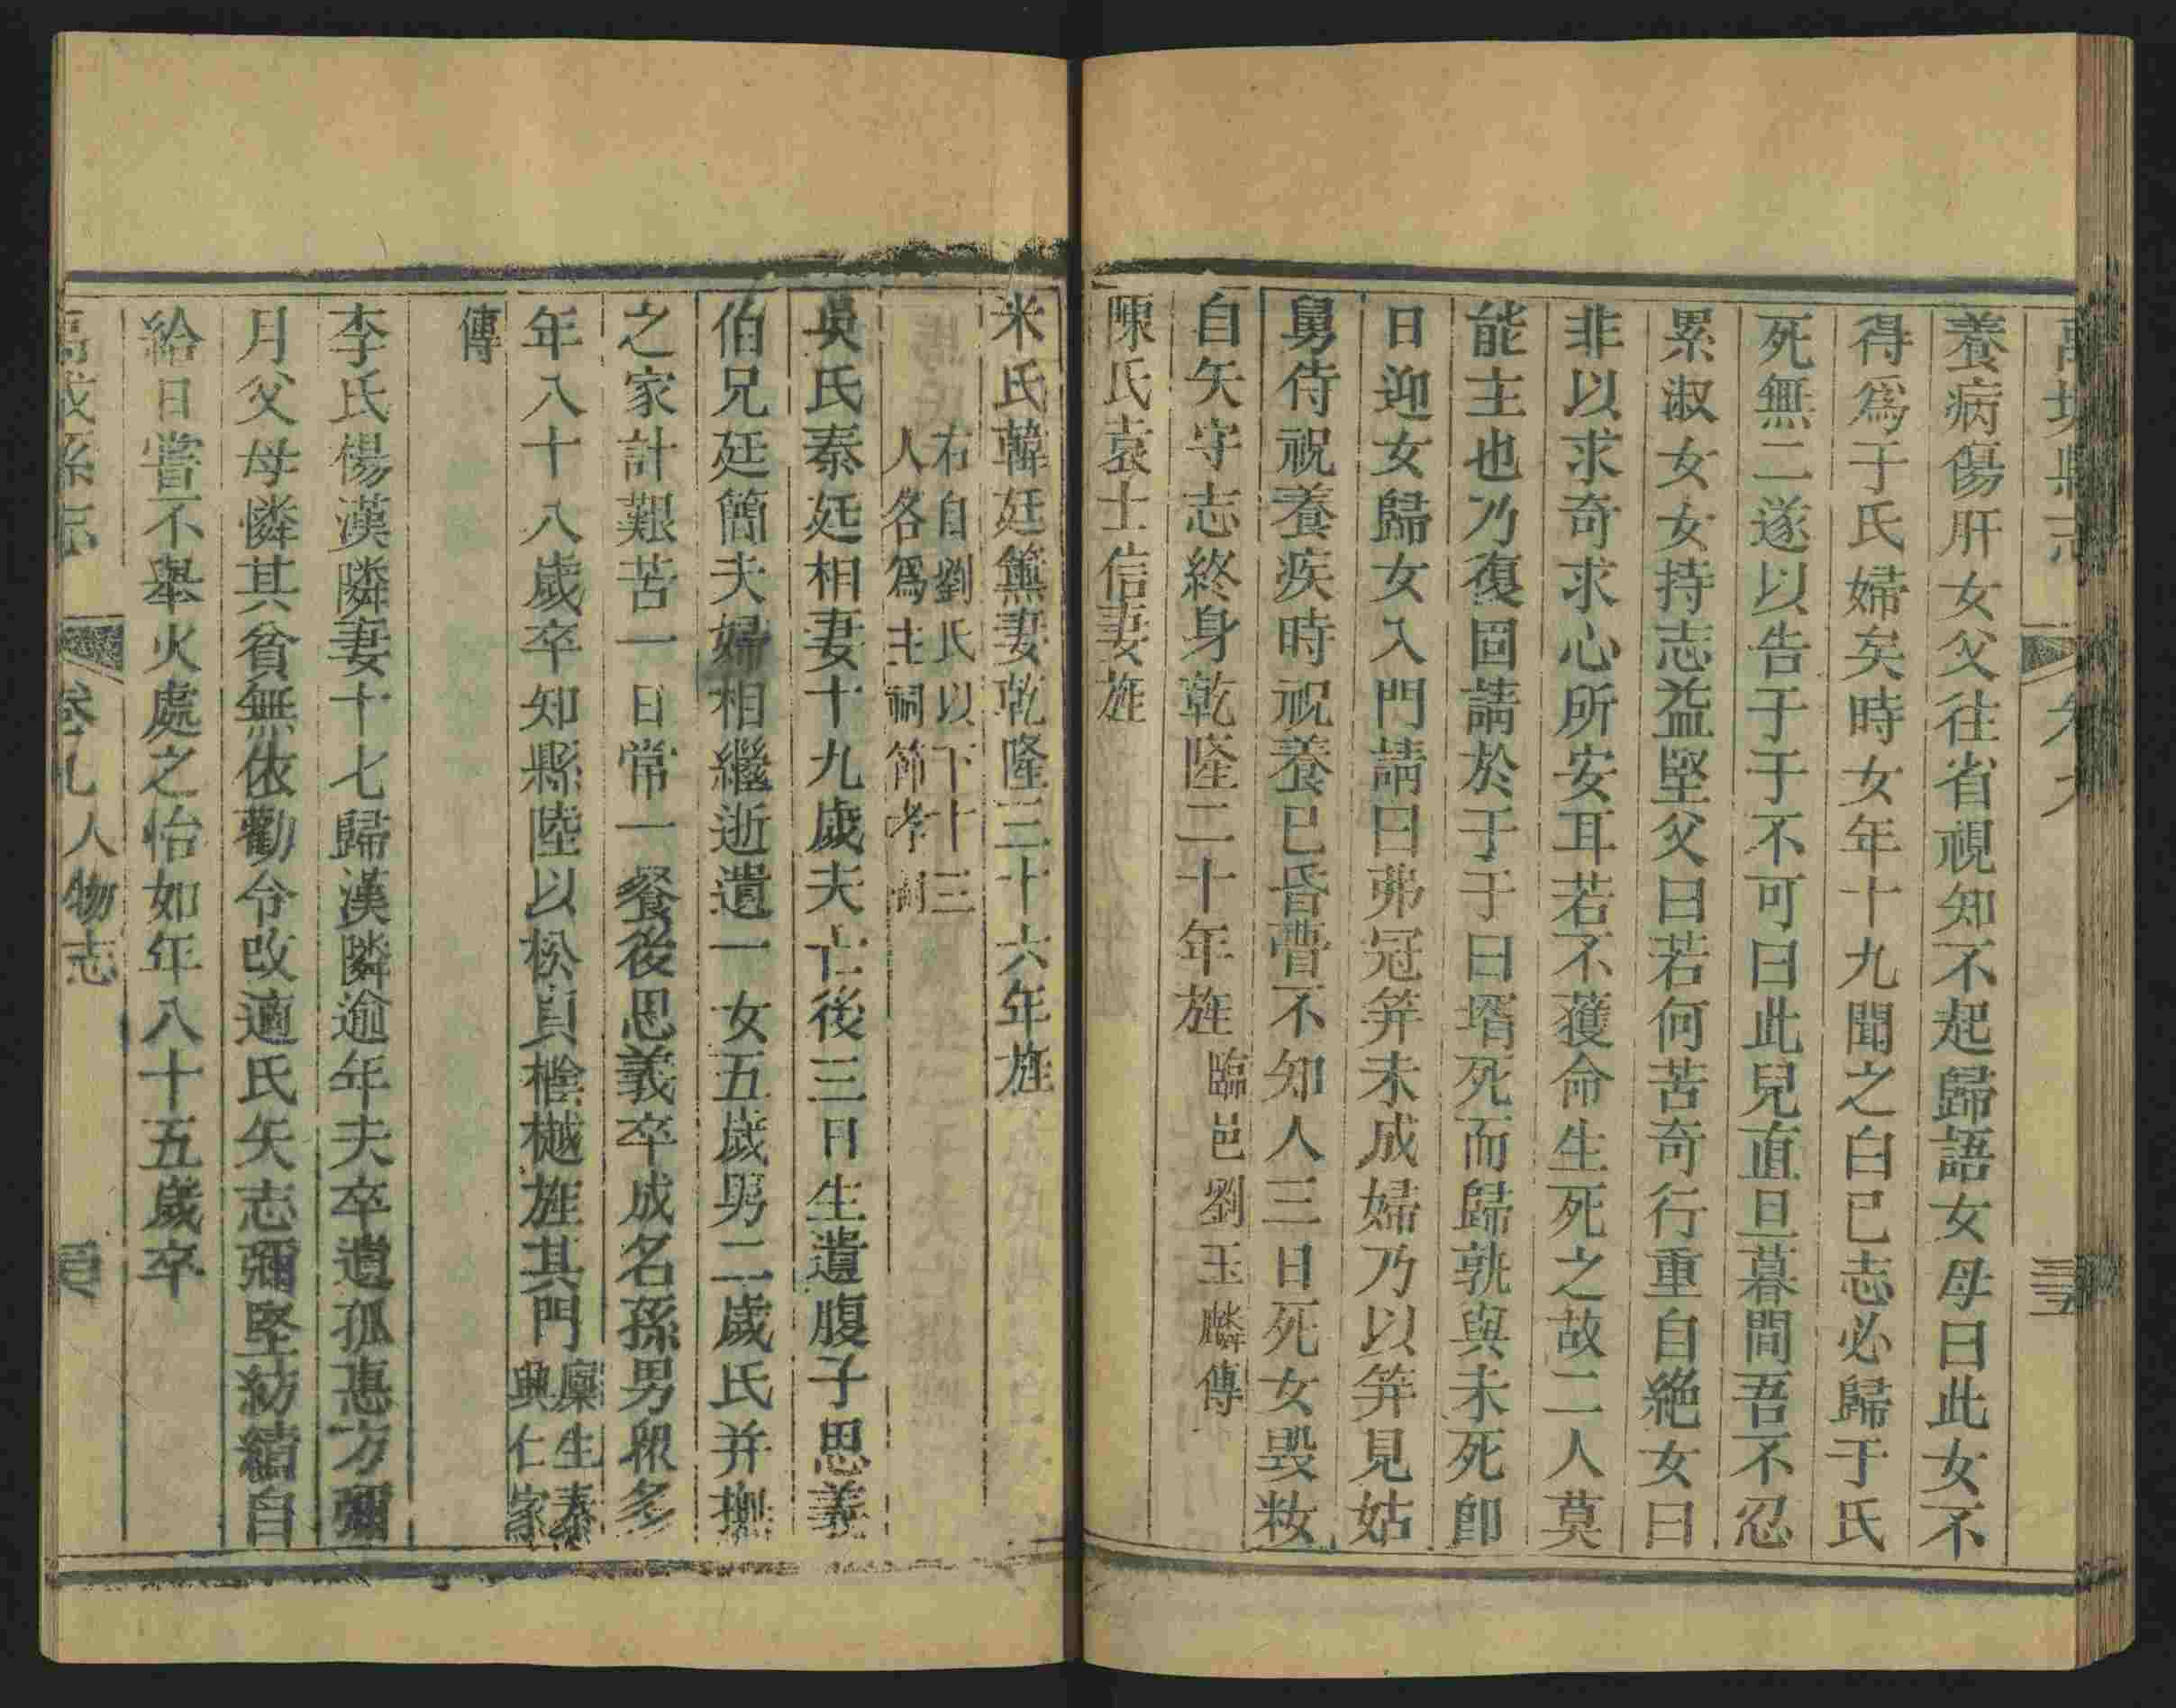 禹城縣志
卷九
三五
養病傷肝女父往省視知不起歸語女母曰此女不
得爲于氏婦矣時女年十九聞之白已志必歸于氏
死無二遂以告于于不可曰此兒直旦暮間吾不忍
累淑女女持志益堅父曰若何苦奇行重自絶女曰
非以求奇求心所安耳若不獲命生死之故二人莫
能主也乃復固請於于于曰壻死而歸孰與未死卽
日迎女歸女入門請曰弗冠笄未成婦乃以笄見姑
舅侍祝養疾時祝養已昏瞢不知人三日死女毀粧
自矢守志終身乾隆二十年旌臨邑劉玉麟傳
陳氏袁士信妻旌
米氏韓廷薰妻乾隆三十六年旌
右自劉氏以下十三
人各爲主祠節孝祠
吳氏秦廷相妻十九歲夫亡後三日生遺腹子思義
伯兄廷簡夫婦相繼逝遺一女五歲男二歲氏并撫
之家計艱苦一日常一餐後思義卒成名孫男衆多
年八十八歲卒知縣陸以松貞檜樾旌其門廩生秦
興仁家
傳
李氏楊漢隣妻十七歸漢隣逾年夫卒遺孤惠方彌
月父母憐其貧無依勸令改適氏矢志彌堅紡績自
給日嘗不舉火處之怡如年八十五歲卒
禹城縣志
卷九人物志